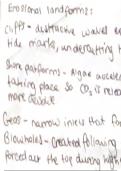 Erosional landforms:
Cliffs - destructive waves e
tide marks, undercutting t
Shore platforms - Algae
taking place so CO2 is relea
more acidic
Geos - narrow inlets that fo
Blowholes - created following
forced out the top during high